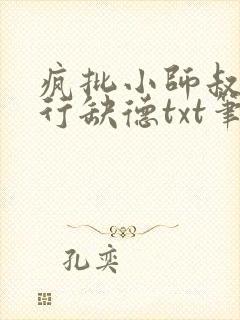 疯批小師叔
行缺德txt筆
孔奕